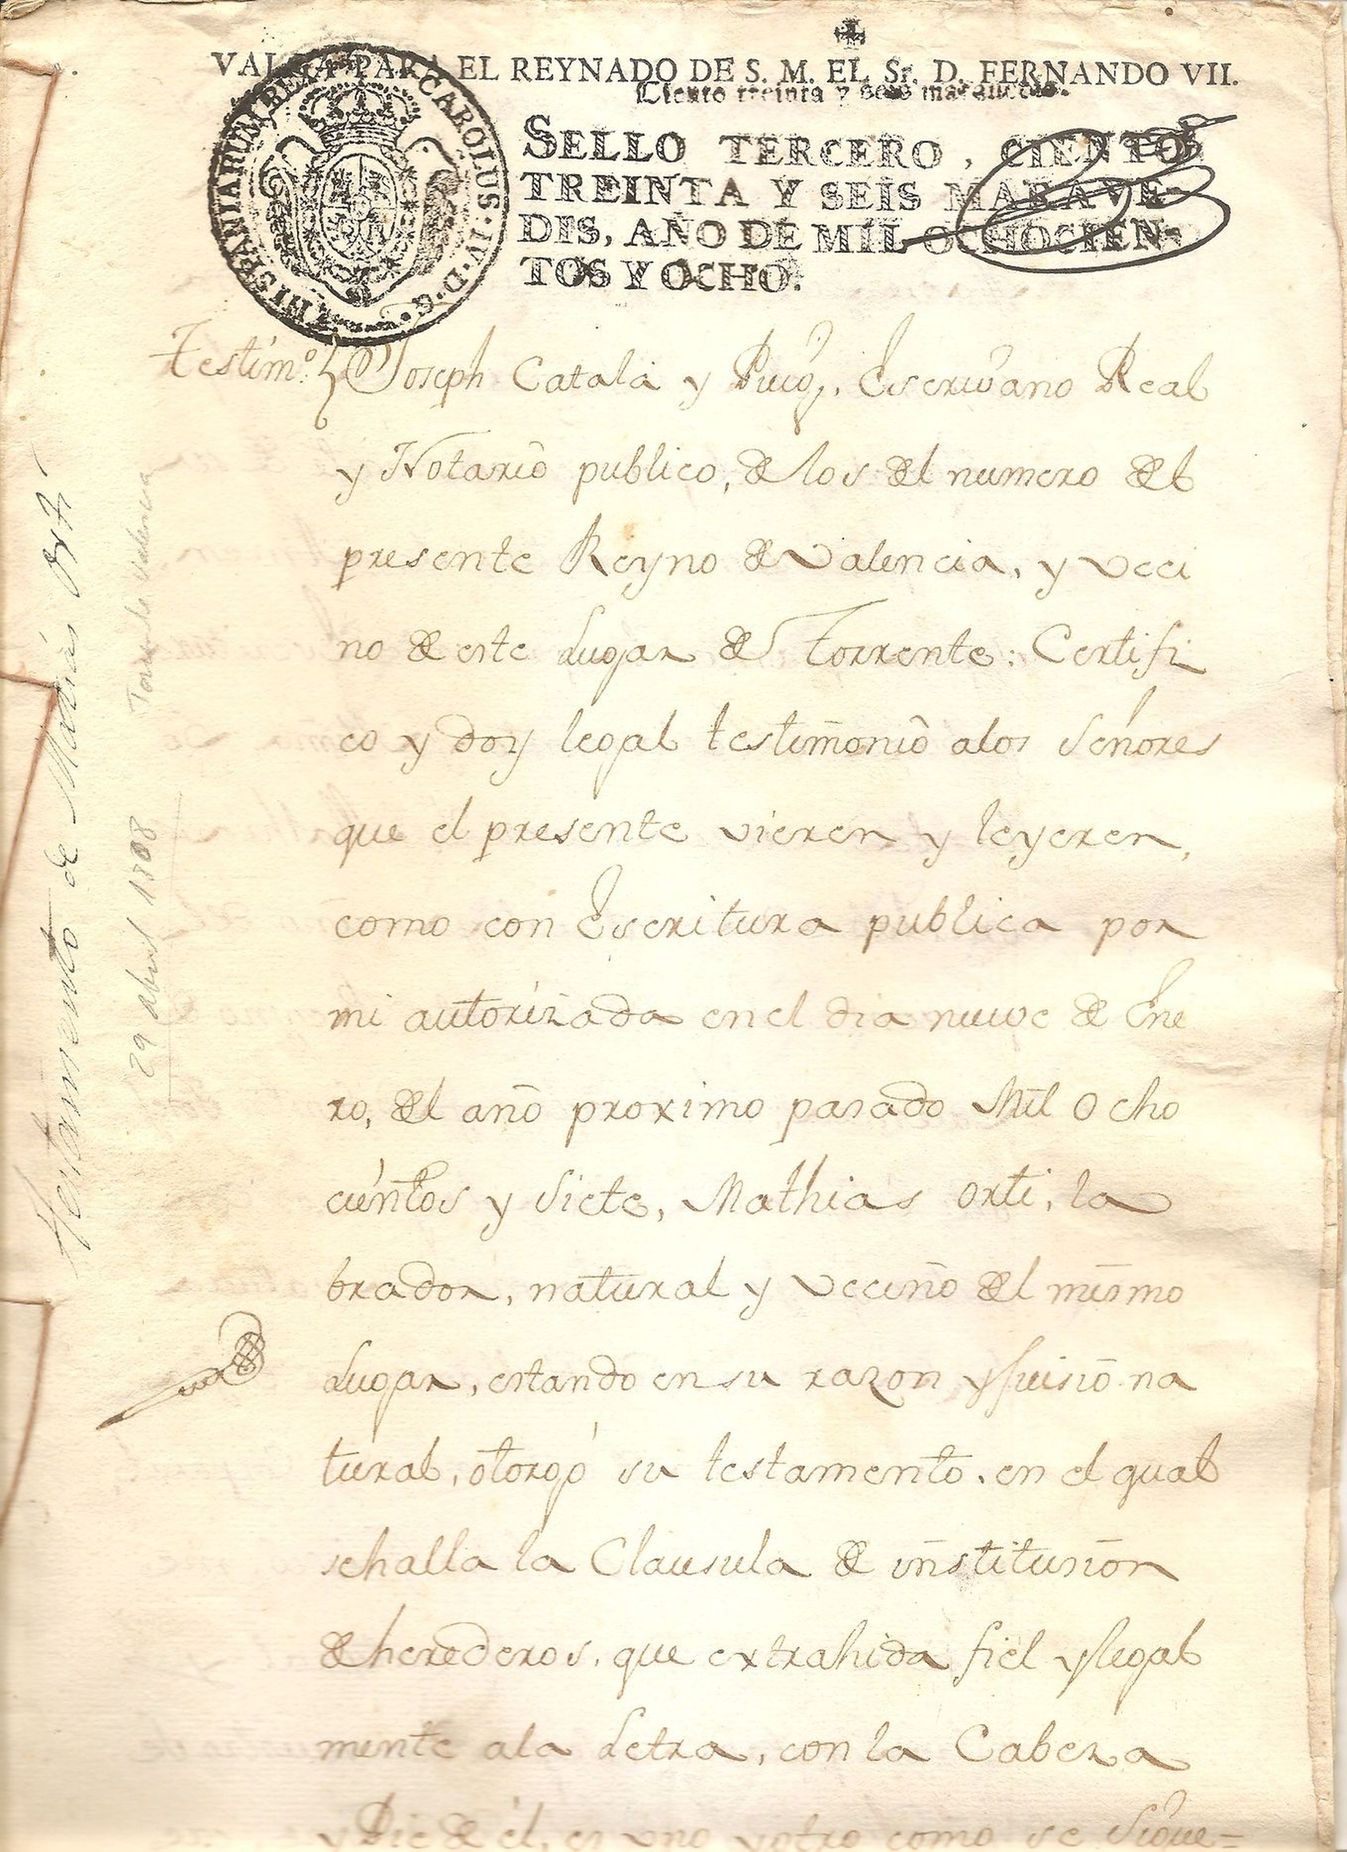 VALGA PARA EL REYNADO DE S. M. EL Sr. D. FERNANDO VII.
Ciento treinta y seis maravedis.
HISPANIARUM REX CAROLUS · IV · D · G ·
SELLO TERCERO, CIENTO
TREINTA Y SEIS MARAVE-
DIS, AÑO DE MIL OCHOCIEN-
TOS Y OCHO.
Testimo. Joseph Catalá y Puig, Escrivano Real
y Notario publico, de los del numero del
presente Reyno de Valencia, y veci
no de este Lugar de Torrente: Certifi
co y doy legal testimonio alos Señores
que el presente vieren y leyeren,
como con Escritura publica por
mi autorizada en el dia nueve de Ene
ro, del año proximo pasado Mil ocho
cientos y siete, Mathias Orti, la
brador, natural y vecino del mismo
Lugar, estando en su razon y juisio na
tural, otorgó su testamento, en el qual
sehalla la Clausula de institusion
de herederos, que extrahida fiel y legal
mente ala Letra, con la Cabeza
y Pie de él, es uno y otro como se sigue=
Testamento de Matias Orti
29 abril 1808
Torrente Valencia